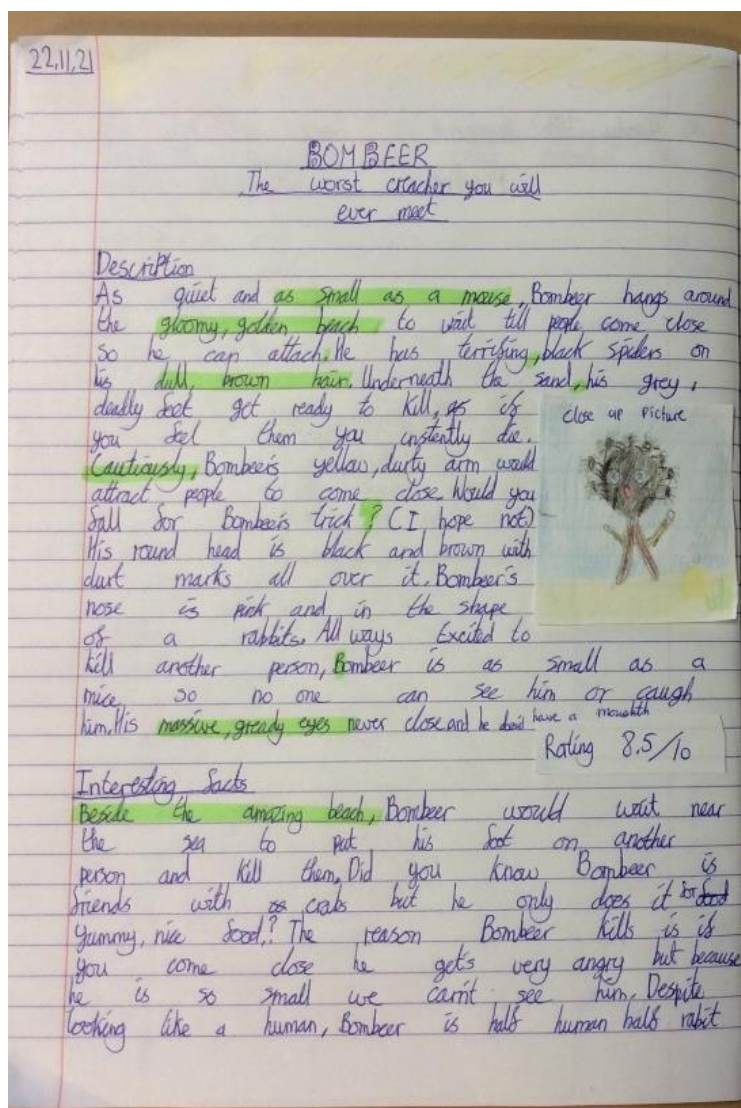 22.11.21
BOMBEER
The worst creacher you will
ever meet
Description
As quiet and as small as a mouse, Bombeer hangs around
the gloomy, golden beach to wait till people come close
so he can attach. He has terrifing, black spiders on
his dull, brown hair. Underneath the sand, his grey,
deadly feet get ready to kill, as if
you feel them you instently die.
Cautiously, Bombeer's yellow, durty arm would
attract people to come close. Would you
fall for Bombeer's trick? (I hope not)
His round head is black and brown with
durt marks all over it. Bombeer's
nose is pick and in the shape
of a rabbits. All ways excited to
kill another person, Bombeer is as small as a
mice so no one can see him or caugh
him. His massive, gready eyes never close and he dosi't have a moushth
close up picture
Rating 8.5/10
Interesting facts
Beside the amazing beach, Bombeer would wait near
the sea to put his foot on another
person and kill them. Did you know Bombeer is
friends with crabs but he only does it for
yummy, nice food? The reason Bombeer kills is if
you come close he gets very angry but because
he is so small we carn't see him. Despite
looking like a human, Bombeer is half human half rabit